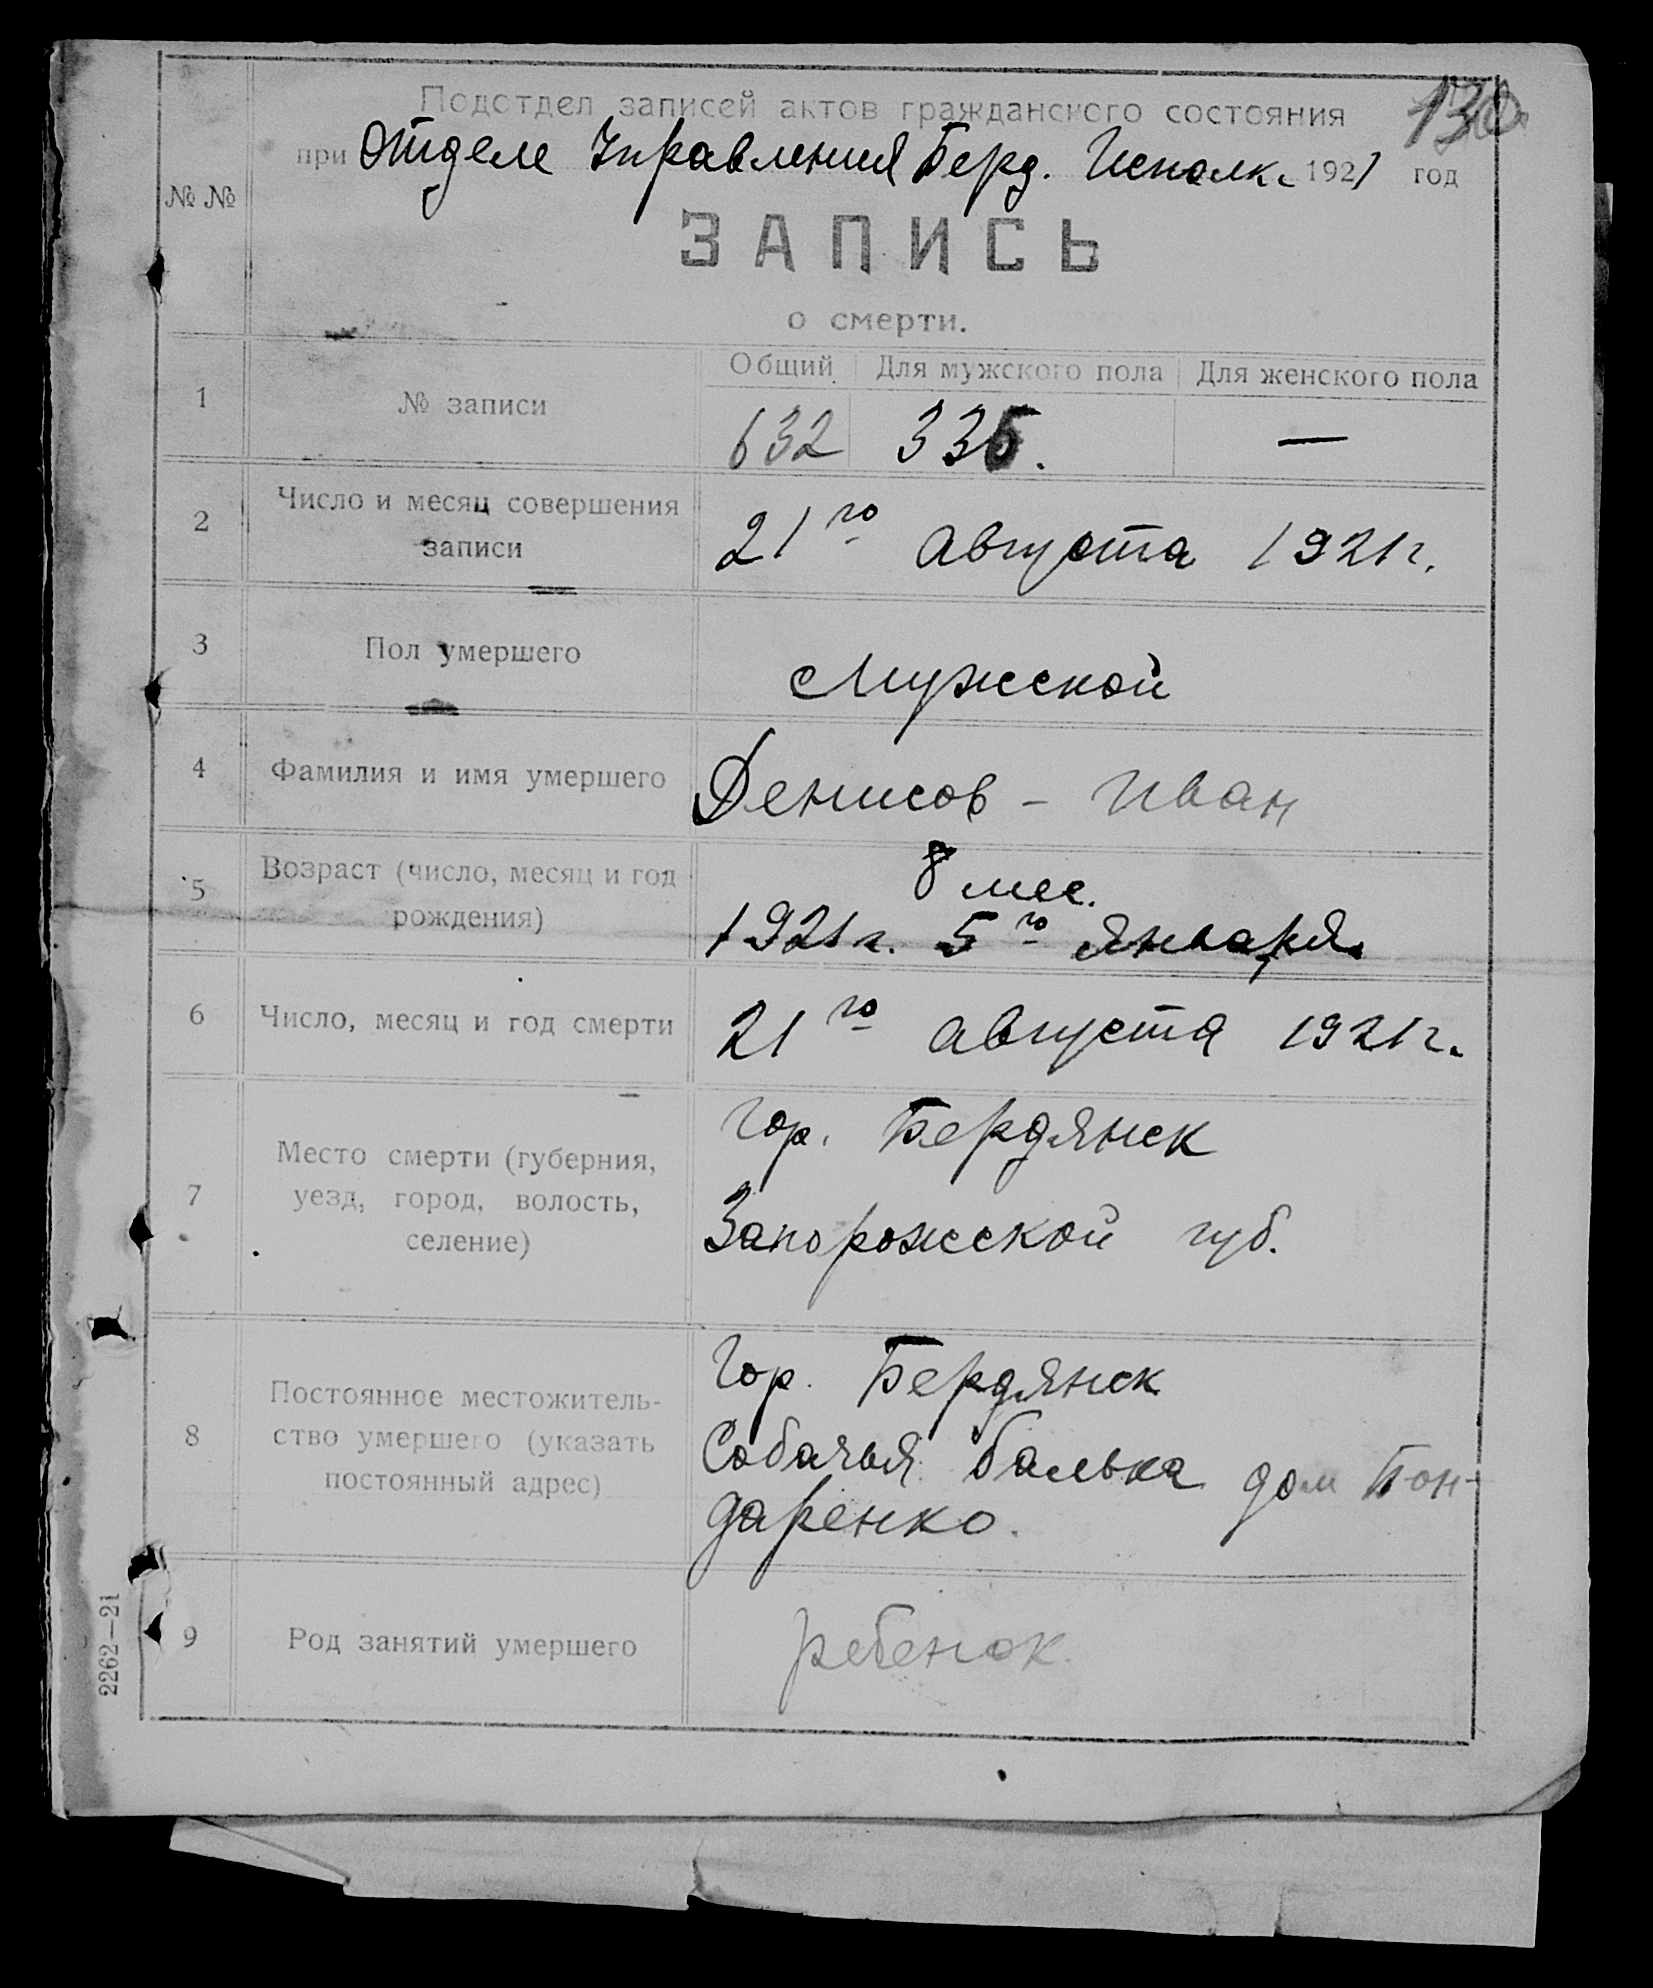 130
Подотдел записей актов гражданского состояния
при Отделе Управления Берд. Исполк. 1921 год
№ №
ЗАПИСЬ
о смерти.
Общий Для мужского пола Для женского пола
1 № записи 632 335. —
2 Число и месяц совершения
записи
21го августа 1921г.
3 Пол умершего Мужской
4 Фамилия и имя умершего Денисов - Иван
5 Возраст (число, месяц и год
рождения)
8 мес.
1921г. 5го Января.
6 Число, месяц и год смерти 21го августа 1921г.
7 Место смерти (губерния,
уезд, город, волость,
селение)
гор. Бердянск
Запорожской губ.
8 Постоянное местожитель-
ство умершего (указать
постоянный адрес)
Гор. Бердянск
Собачья балька дом Бон-
даренко.
9 Род занятий умершего ребенок.
2262—21